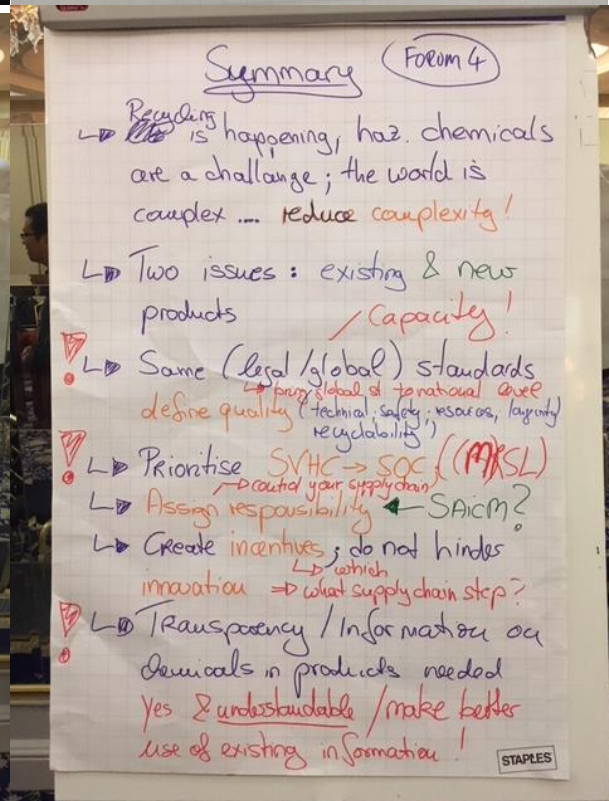 Summary
FORUM 4
Recycling
is happening, haz. chemicals
are a challange; the world is
complex .... reduce complexity!
Two issues: existing & new
products / Capacity!
! Same (legal/global) standards
bring global st to national level
define quality (technical, safety, resources, longevity
recyclability)
! Prioritise SVHC → SOC, ((M)RSL)
control your supply chain
Assign responsibility ← SAICM?
Create incentives; do not hinder
which
innovation ⇒ what supply chain step?
! Transparency / Information on
chemicals in products needed
Yes & understandable / make better
use of existing information!
STAPLES